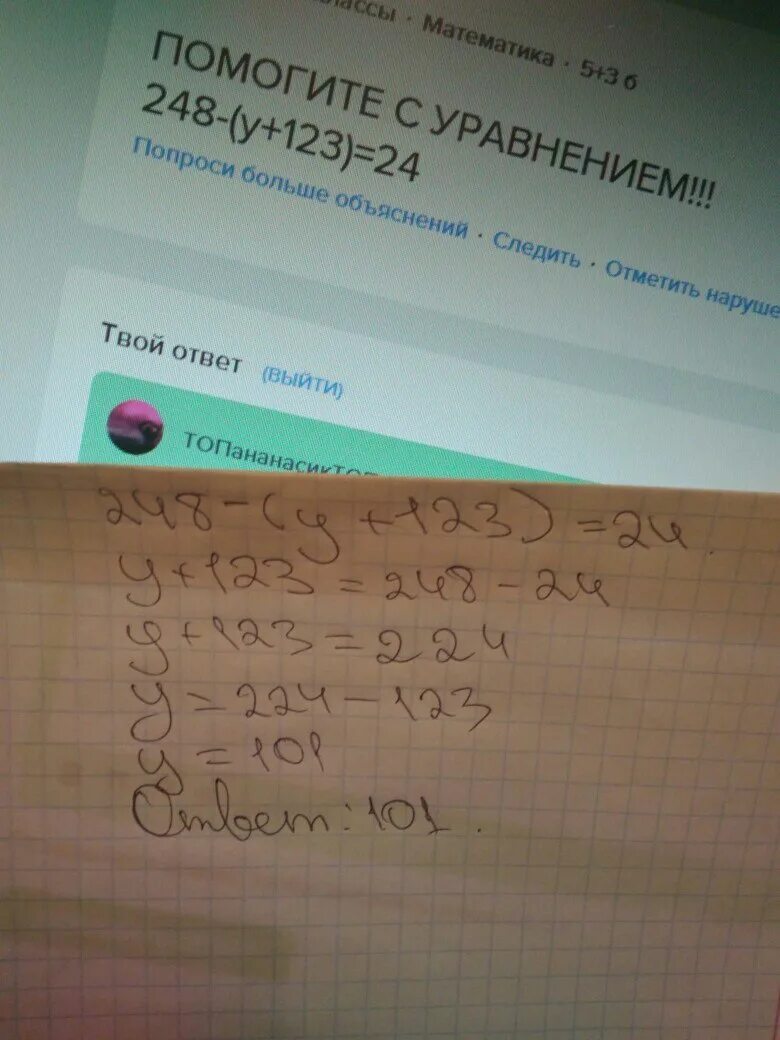 классы · Математика · 5+3 б
ПОМОГИТЕ С УРАВНЕНИЕМ!!!
248-(у+123)=24
Попроси больше объяснений · Следить · Отметить наруше
Твой ответ (ВЫЙТИ)
ТОПананасикТОП
248-(у+123)=24.
у+123=248-24
у+123=224
у=224-123
у=101
Ответ: 101.